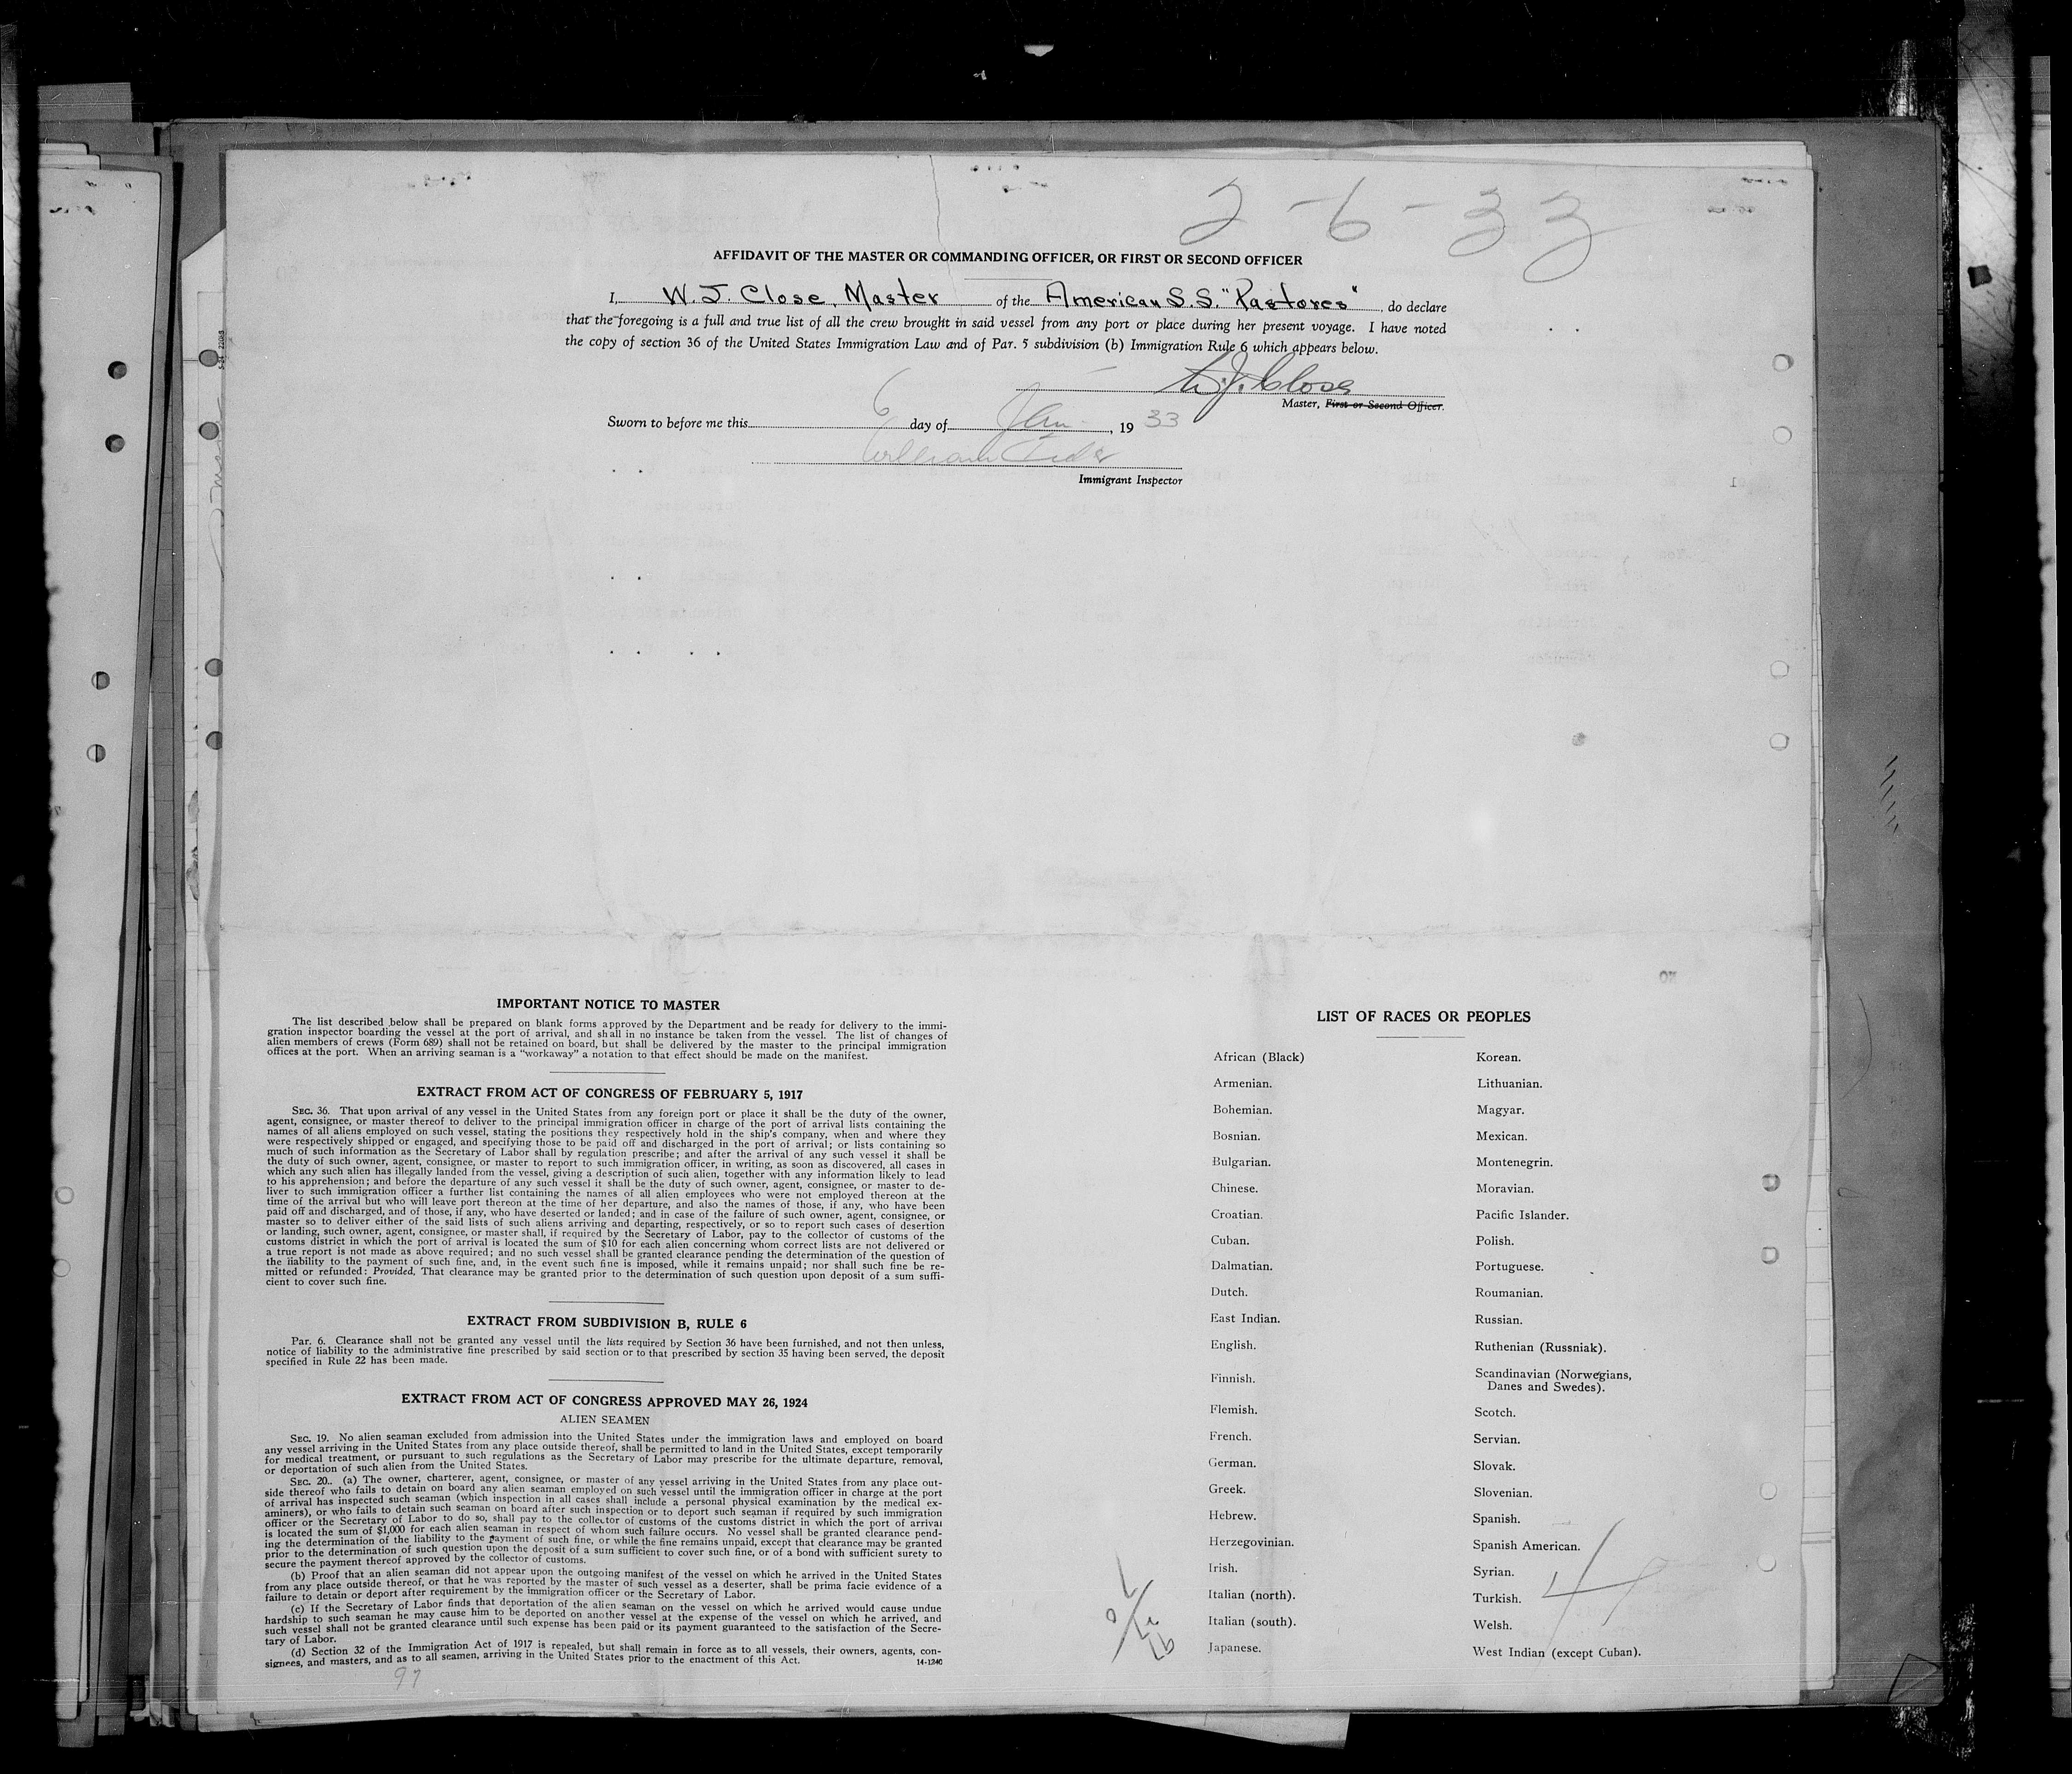 2-6-33
AFFIDAVIT OF THE MASTER OR COMMANDING OFFICER, OR FIRST OR SECOND OFFICER
I, W. J. Close, Master of the American S.S. "Pastores", do declare
that the foregoing is a full and true list of all the crew brought in said vessel from any port or place during her present voyage. I have noted
the copy of section 36 of the United States Immigration Law and of Par. 5 subdivision (b) Immigration Rule 6 which appears below.
W. J. Close
Master, First or Second Officer.
Sworn to before me this 6 day of Jan, 19 33
William
Immigrant Inspector
IMPORTANT NOTICE TO MASTER
The list described below shall be prepared on blank forms approved by the Department and be ready for delivery to the immi-
gration inspector boarding the vessel at the port of arrival, and shall in no instance be taken from the vessel. The list of changes of
alien members of crews (Form 689) shall not be retained on board, but shall be delivered by the master to the principal immigration
offices at the port. When an arriving seaman is a "workaway" a notation to that effect should be made on the manifest.
EXTRACT FROM ACT OF CONGRESS OF FEBRUARY 5, 1917
SEC. 36. That upon arrival of any vessel in the United States from any foreign port or place it shall be the duty of the owner,
agent, consignee, or master thereof to deliver to the principal immigration officer in charge of the port of arrival lists containing the
names of all aliens employed on such vessel, stating the positions they respectively hold in the ship's company, when and where they
were respectively shipped or engaged, and specifying those to be paid off and discharged in the port of arrival; or lists containing so
much of such information as the Secretary of Labor shall by regulation prescribe; and after the arrival of any such vessel it shall be
the duty of such owner, agent, consignee, or master to report to such immigration officer, in writing, as soon as discovered, all cases in
which any such alien has illegally landed from the vessel, giving a description of such alien, together with any information likely to lead
to his apprehension; and before the departure of any such vessel it shall be the duty of such owner, agent, consignee, or master to de-
liver to such immigration officer a further list containing the names of all alien employees who were not employed thereon at the
time of the arrival but who will leave port thereon at the time of her departure, and also the names of those, if any, who have been
paid off and discharged, and of those, if any, who have deserted or landed; and in case of the failure of such owner, agent, consignee, or
master so to deliver either of the said lists of such aliens arriving and departing, respectively, or so to report such cases of desertion
or landing, such owner, agent, consignee, or master shall, if required by the Secretary of Labor, pay to the collector of customs of the
customs district in which the port of arrival is located the sum of $10 for each alien concerning whom correct lists are not delivered or
a true report is not made as above required; and no such vessel shall be granted clearance pending the determination of the question of
the liability to the payment of such fine, and, in the event such fine is imposed, while it remains unpaid; nor shall such fine be re-
mitted or refunded: Provided, That clearance may be granted prior to the determination of such question upon deposit of a sum suffi-
cient to cover such fine.
EXTRACT FROM SUBDIVISION B, RULE 6
Par. 6. Clearance shall not be granted any vessel until the lists required by Section 36 have been furnished, and not then unless,
notice of liability to the administrative fine prescribed by said section or to that prescribed by section 35 having been served, the deposit
specified in Rule 22 has been made.
EXTRACT FROM ACT OF CONGRESS APPROVED MAY 26, 1924
ALIEN SEAMEN
SEC. 19. No alien seaman excluded from admission into the United States under the immigration laws and employed on board
any vessel arriving in the United States from any place outside thereof, shall be permitted to land in the United States, except temporarily
for medical treatment, or pursuant to such regulations as the Secretary of Labor may prescribe for the ultimate departure, removal,
or deportation of such alien from the United States.
SEC. 20. (a) The owner, charterer, agent, consignee, or master of any vessel arriving in the United States from any place out-
side thereof who fails to detain on board any alien seaman employed on such vessel until the immigration officer in charge at the port
of arrival has inspected such seaman (which inspection in all cases shall include a personal physical examination by the medical ex-
aminers), or who fails to detain such seaman on board after such inspection or to deport such seaman if required by such immigration
officer or the Secretary of Labor to do so, shall pay to the collector of customs of the customs district in which the port of arrival
is located the sum of $1,000 for each alien seaman in respect of whom such failure occurs. No vessel shall be granted clearance pend-
ing the determination of the liability to the payment of such fine, or while the fine remains unpaid, except that clearance may be granted
prior to the determination of such question upon the deposit of a sum sufficient to cover such fine, or of a bond with sufficient surety to
secure the payment thereof approved by the collector of customs.
(b) Proof that an alien seaman did not appear upon the outgoing manifest of the vessel on which he arrived in the United States
from any place outside thereof, or that he was reported by the master of such vessel as a deserter, shall be prima facie evidence of a
failure to detain or deport after requirement by the immigration officer or the Secretary of Labor.
(c) If the Secretary of Labor finds that deportation of the alien seaman on the vessel on which he arrived would cause undue
hardship to such seaman he may cause him to be deported on another vessel at the expense of the vessel on which he arrived, and
such vessel shall not be granted clearance until such expense has been paid or its payment guaranteed to the satisfaction of the Secre-
tary of Labor.
(d) Section 32 of the Immigration Act of 1917 is repealed, but shall remain in force as to all vessels, their owners, agents, con-
signees, and masters, and as to all seamen, arriving in the United States prior to the enactment of this Act.
14-1240
97
LIST OF RACES OR PEOPLES
African (Black)
Armenian.
Bohemian.
Bosnian.
Bulgarian.
Chinese.
Croatian.
Cuban.
Dalmatian.
Dutch.
East Indian.
English.
Finnish.
Flemish.
French.
German.
Greek.
Hebrew.
Herzegovinian.
Irish.
Italian (north).
Italian (south).
Japanese.
Korean.
Lithuanian.
Magyar.
Mexican.
Montenegrin.
Moravian.
Pacific Islander.
Polish.
Portuguese.
Roumanian.
Russian.
Ruthenian (Russniak).
Scandinavian (Norwegians,
Danes and Swedes).
Scotch.
Servian.
Slovak.
Slovenian.
Spanish.
Spanish American.
Syrian.
Turkish.
Welsh.
West Indian (except Cuban).